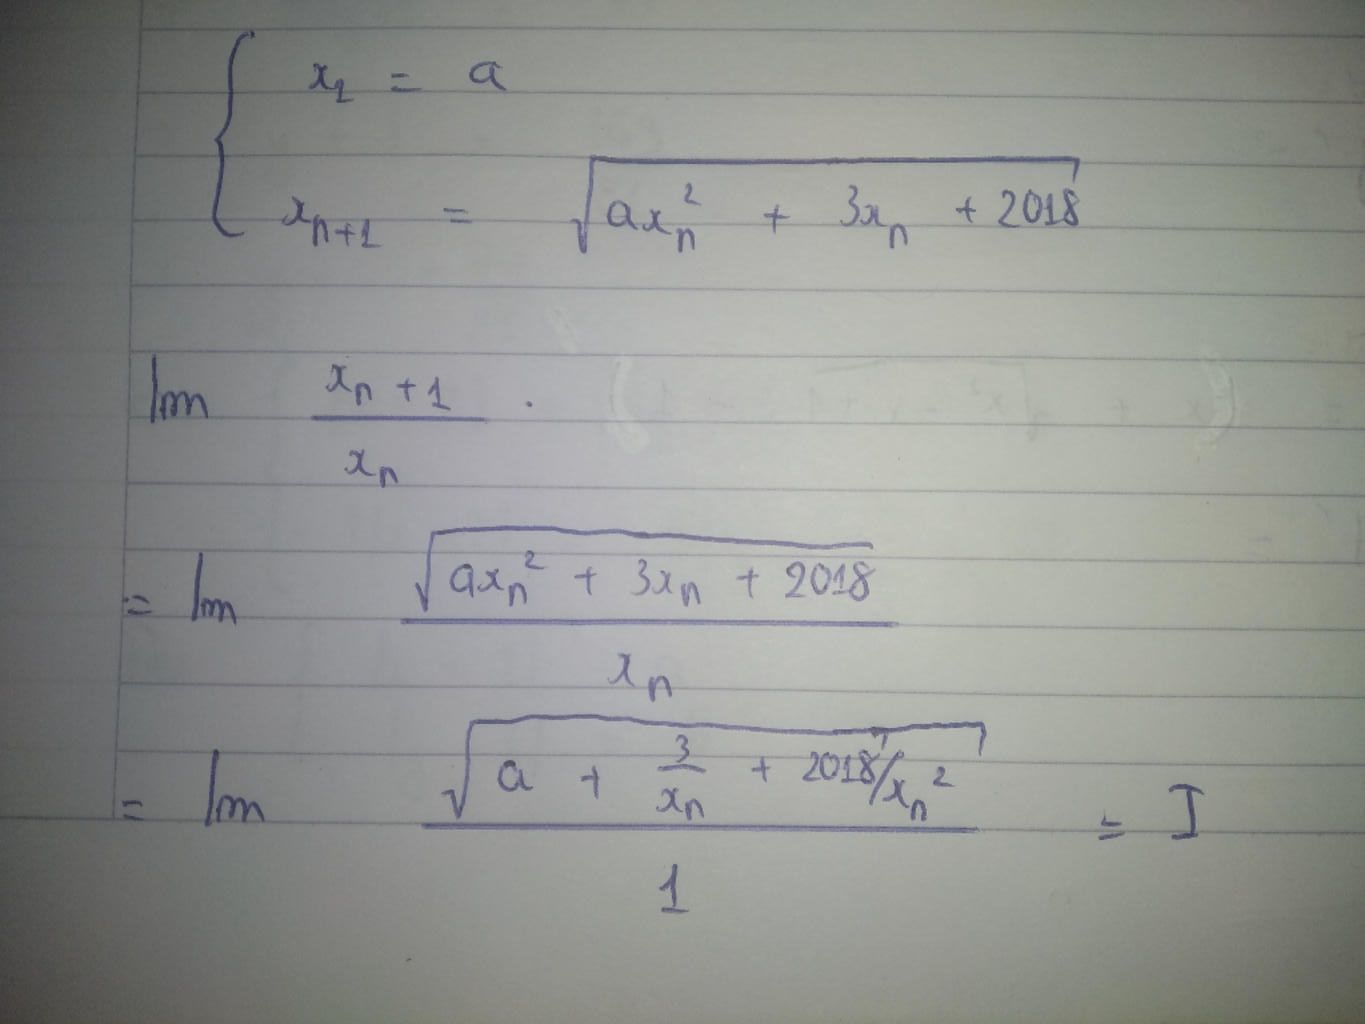 x₁ = a
xₙ₊₁ = √(axₙ² + 3xₙ + 2018)
lim (xₙ₊₁)/(xₙ) .
= lim √(axₙ² + 3xₙ + 2018) / xₙ
= lim √(a + 3/xₙ + 2018/xₙ²) / 1 = I